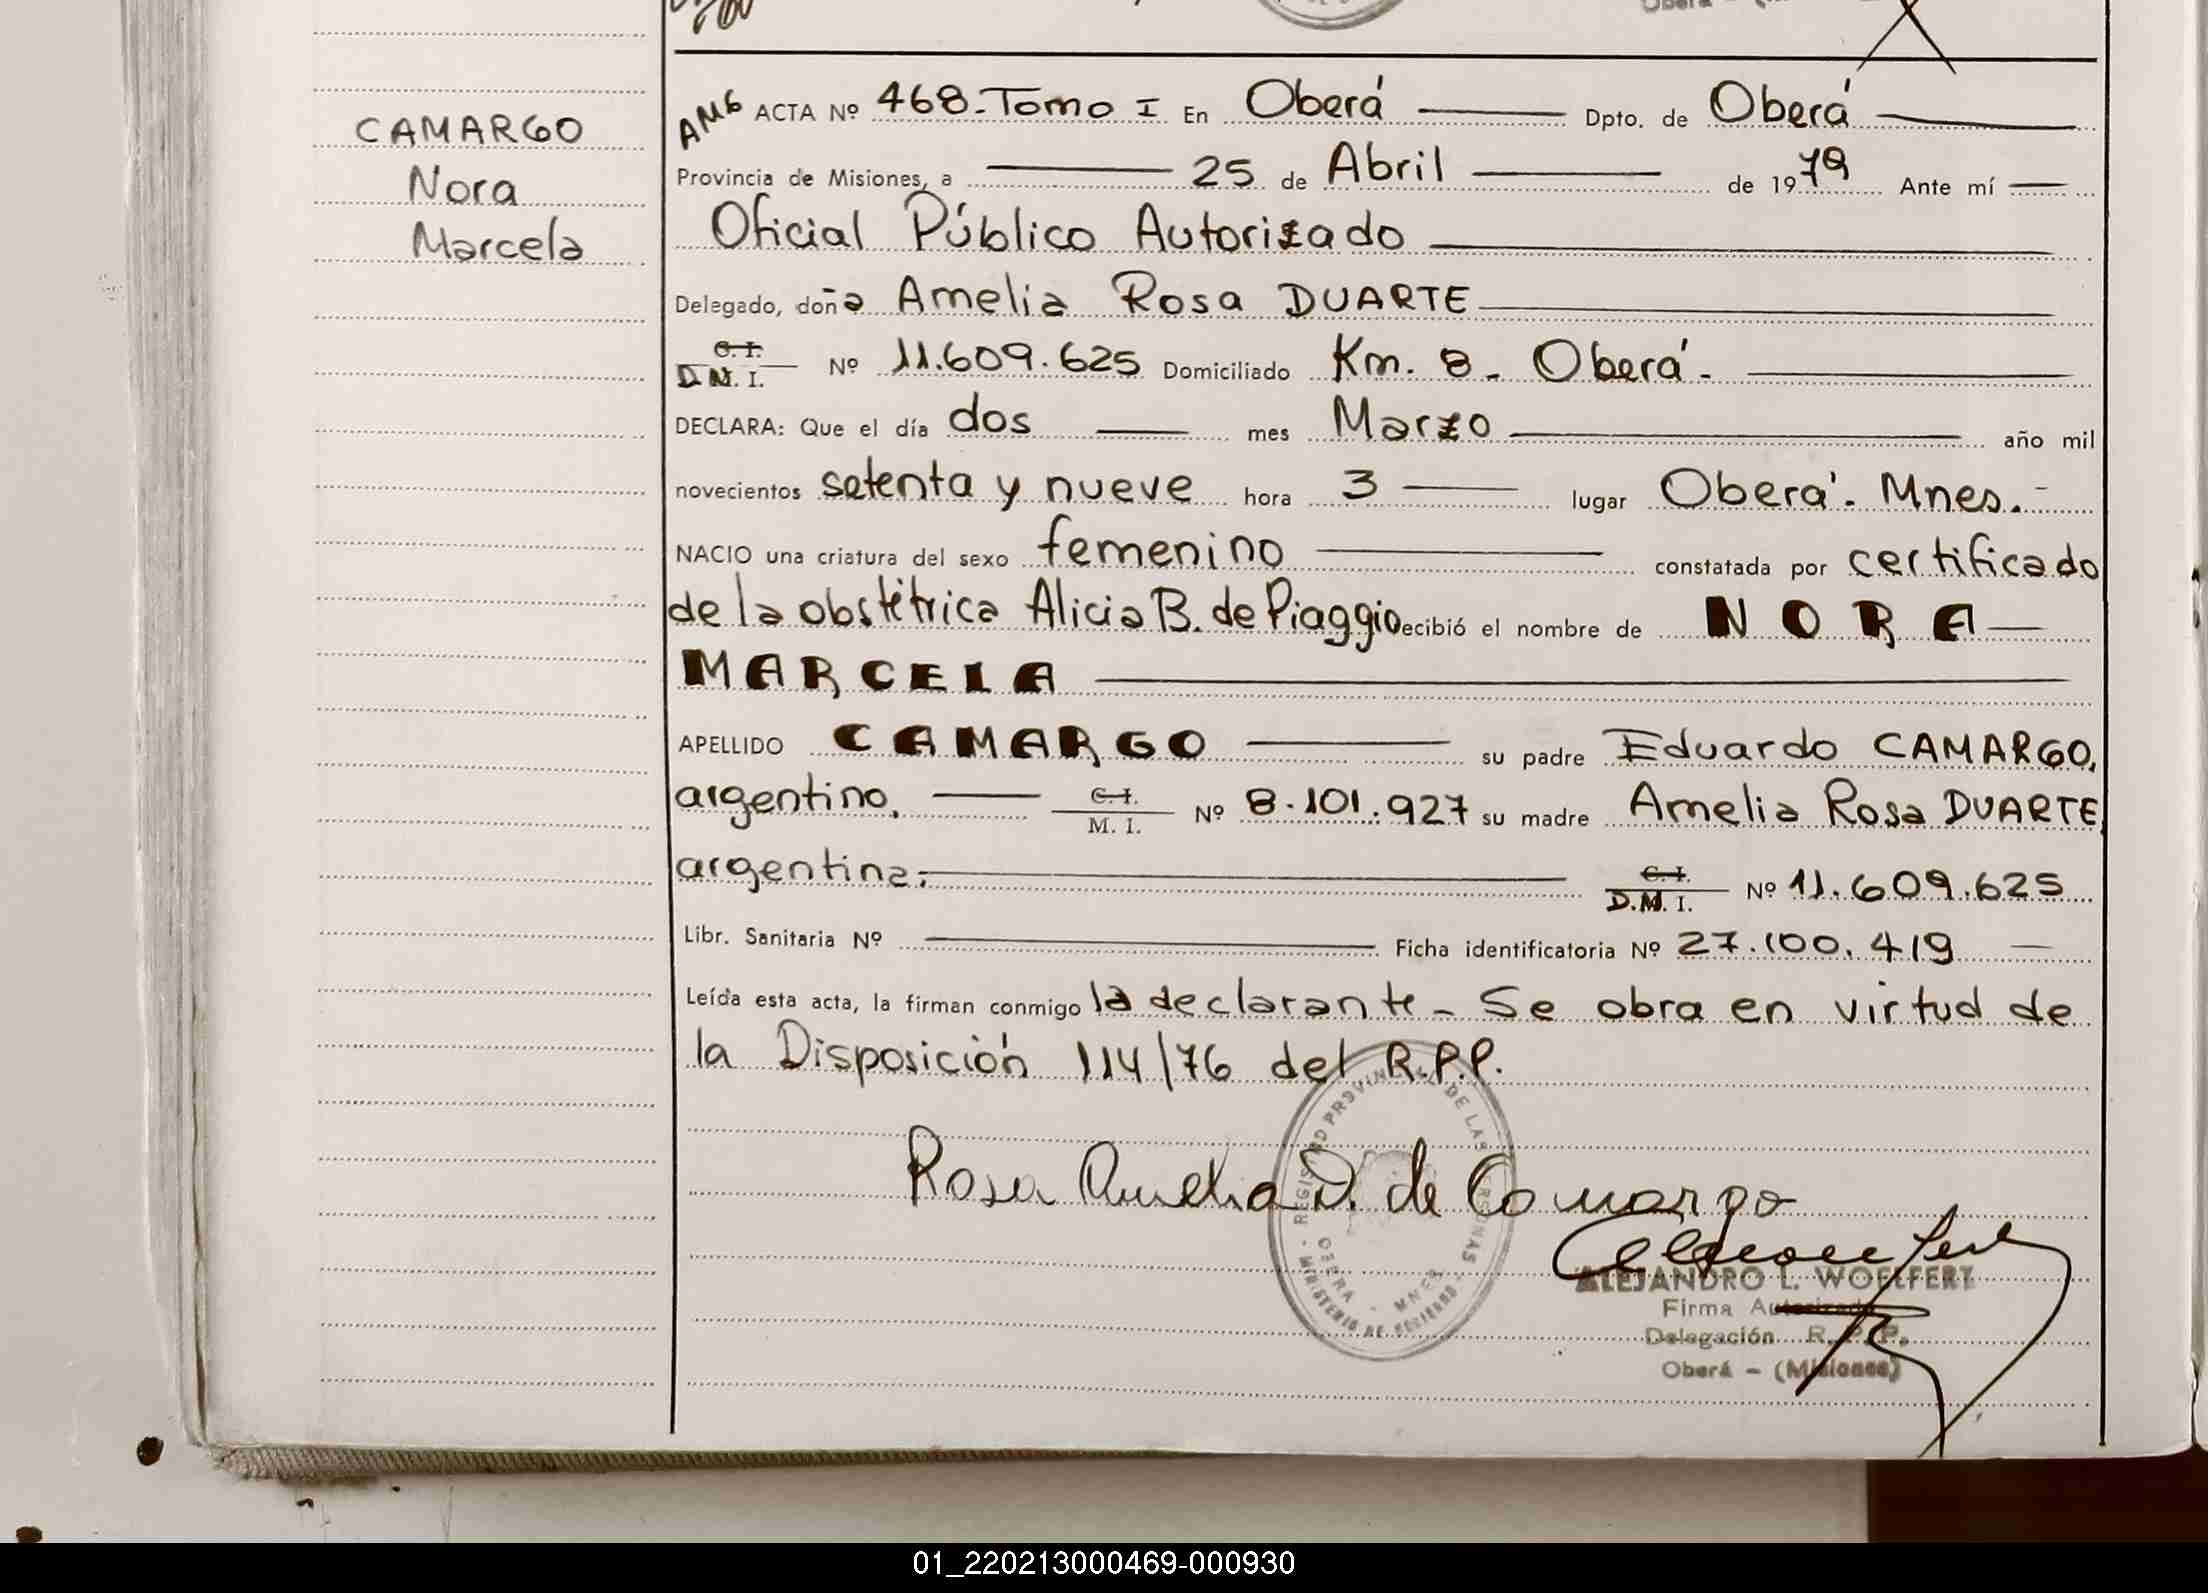 CAMARGO
Nora
Marcela
Oberá - (
AMG ACTA Nº 468-Tomo I En Oberá Dpto. de Oberá
Provincia de Misiones, a 25 de Abril de 1979 Ante mí
Oficial Público Autorizado
Delegado, doña Amelia Rosa DUARTE
C. I.
D.N.I. Nº 11.609.625 Domiciliado Km. 8 - Oberá -
DECLARA: Que el día dos mes Marzo año mil
novecientos setenta y nueve hora 3 lugar Oberá. Mnes. -
NACIO una criatura del sexo femenino constatada por certificado
de la obstétrica Alicia B. de Piaggio ecibió el nombre de NORA
MARCELA
APELLIDO CAMARGO su padre Eduardo CAMARGO,
argentino. C. I.
M. I. Nº 8.101.927 su madre Amelia Rosa DUARTE,
argentina. C. I.
D.M.I. Nº 11.609.625
Libr. Sanitaria Nº Ficha identificatoria Nº 27.100.419
Leída esta acta, la firman conmigo la declarante - Se obra en virtud de
la Disposición 114/76 del R.P.P.
REGISTRO PROVINCIAL DE LAS PERSONAS
OBERA - MNES
MINISTERIO DE GOBIERNO
Rosa Amelia D. de Camargo
ALEJANDRO L. WOELFERT
Firma Autorizada
Delegación R. P. P.
Oberá - (Misiones)
01_220213000469-000930